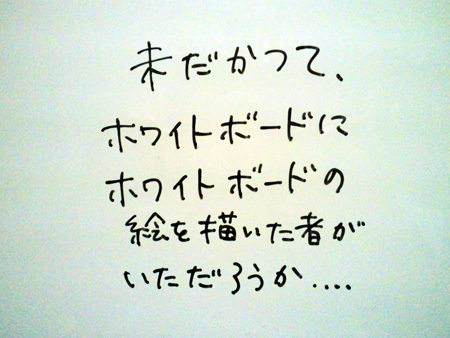 未だかつて、
ホワイトボードに
ホワイトボードの
絵を描いた者が
いただろうか....